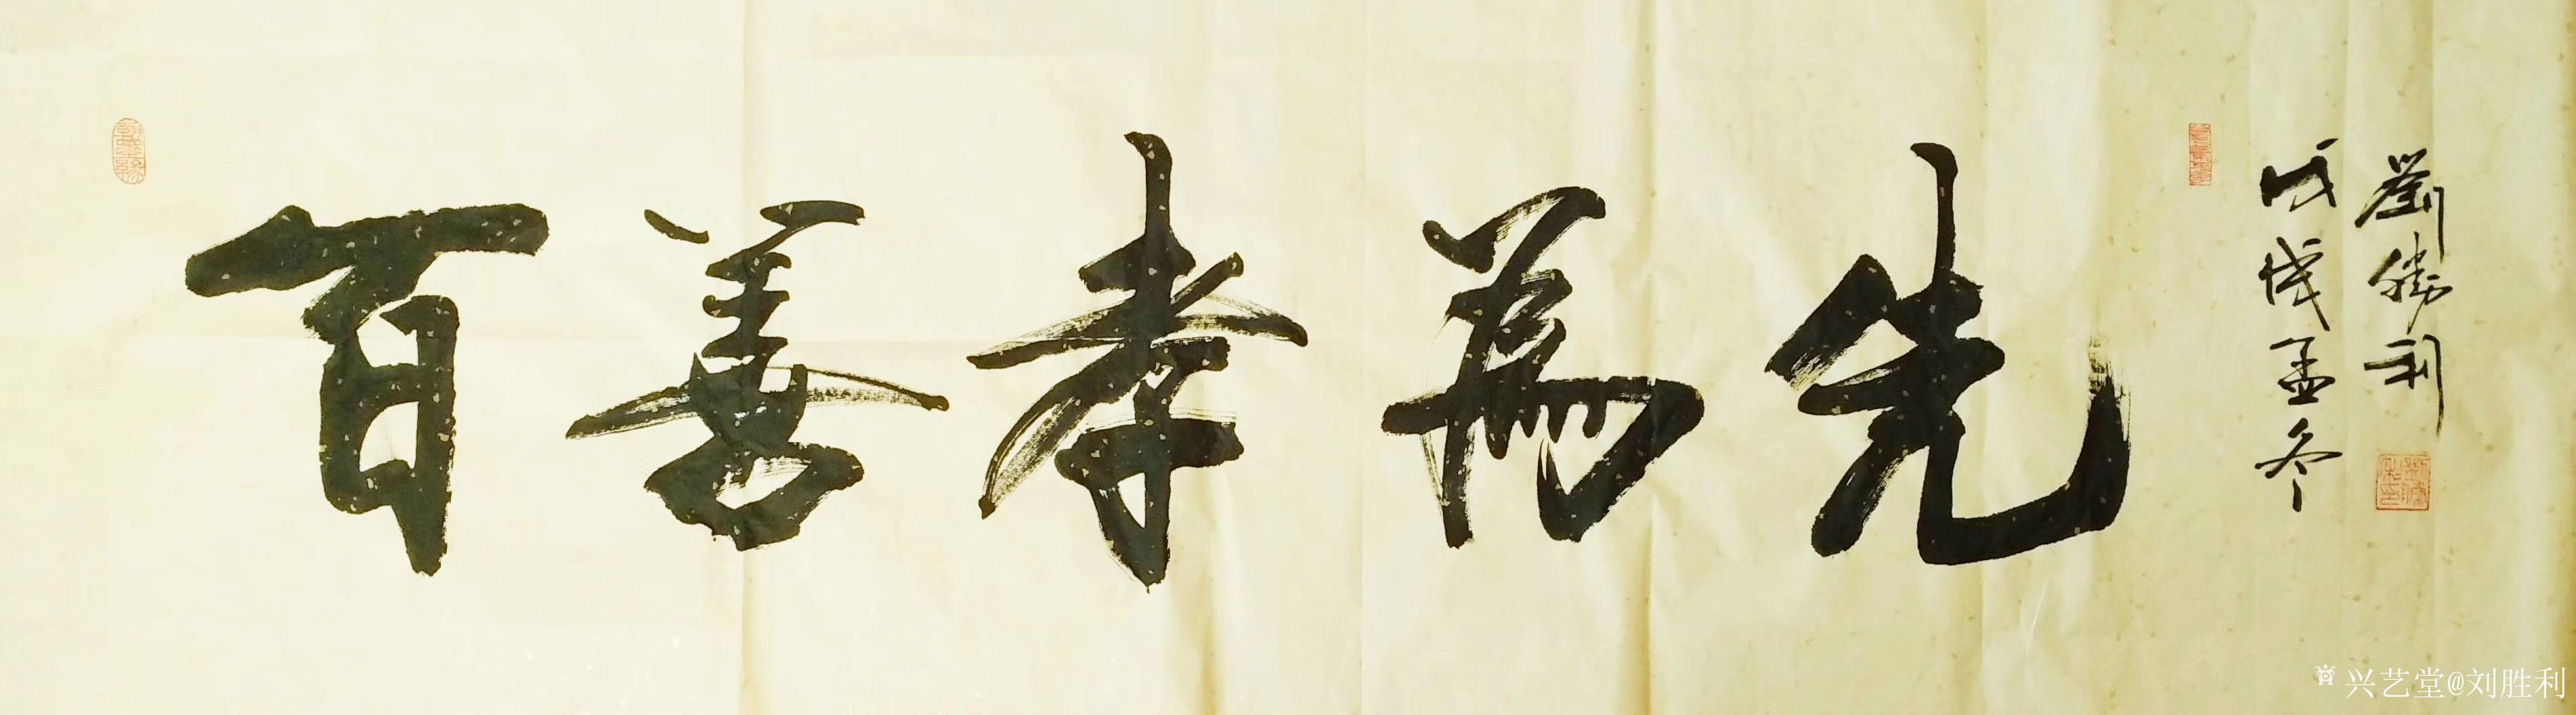 百善孝為先
戊戌孟冬
劉勝利
兴艺堂@刘胜利